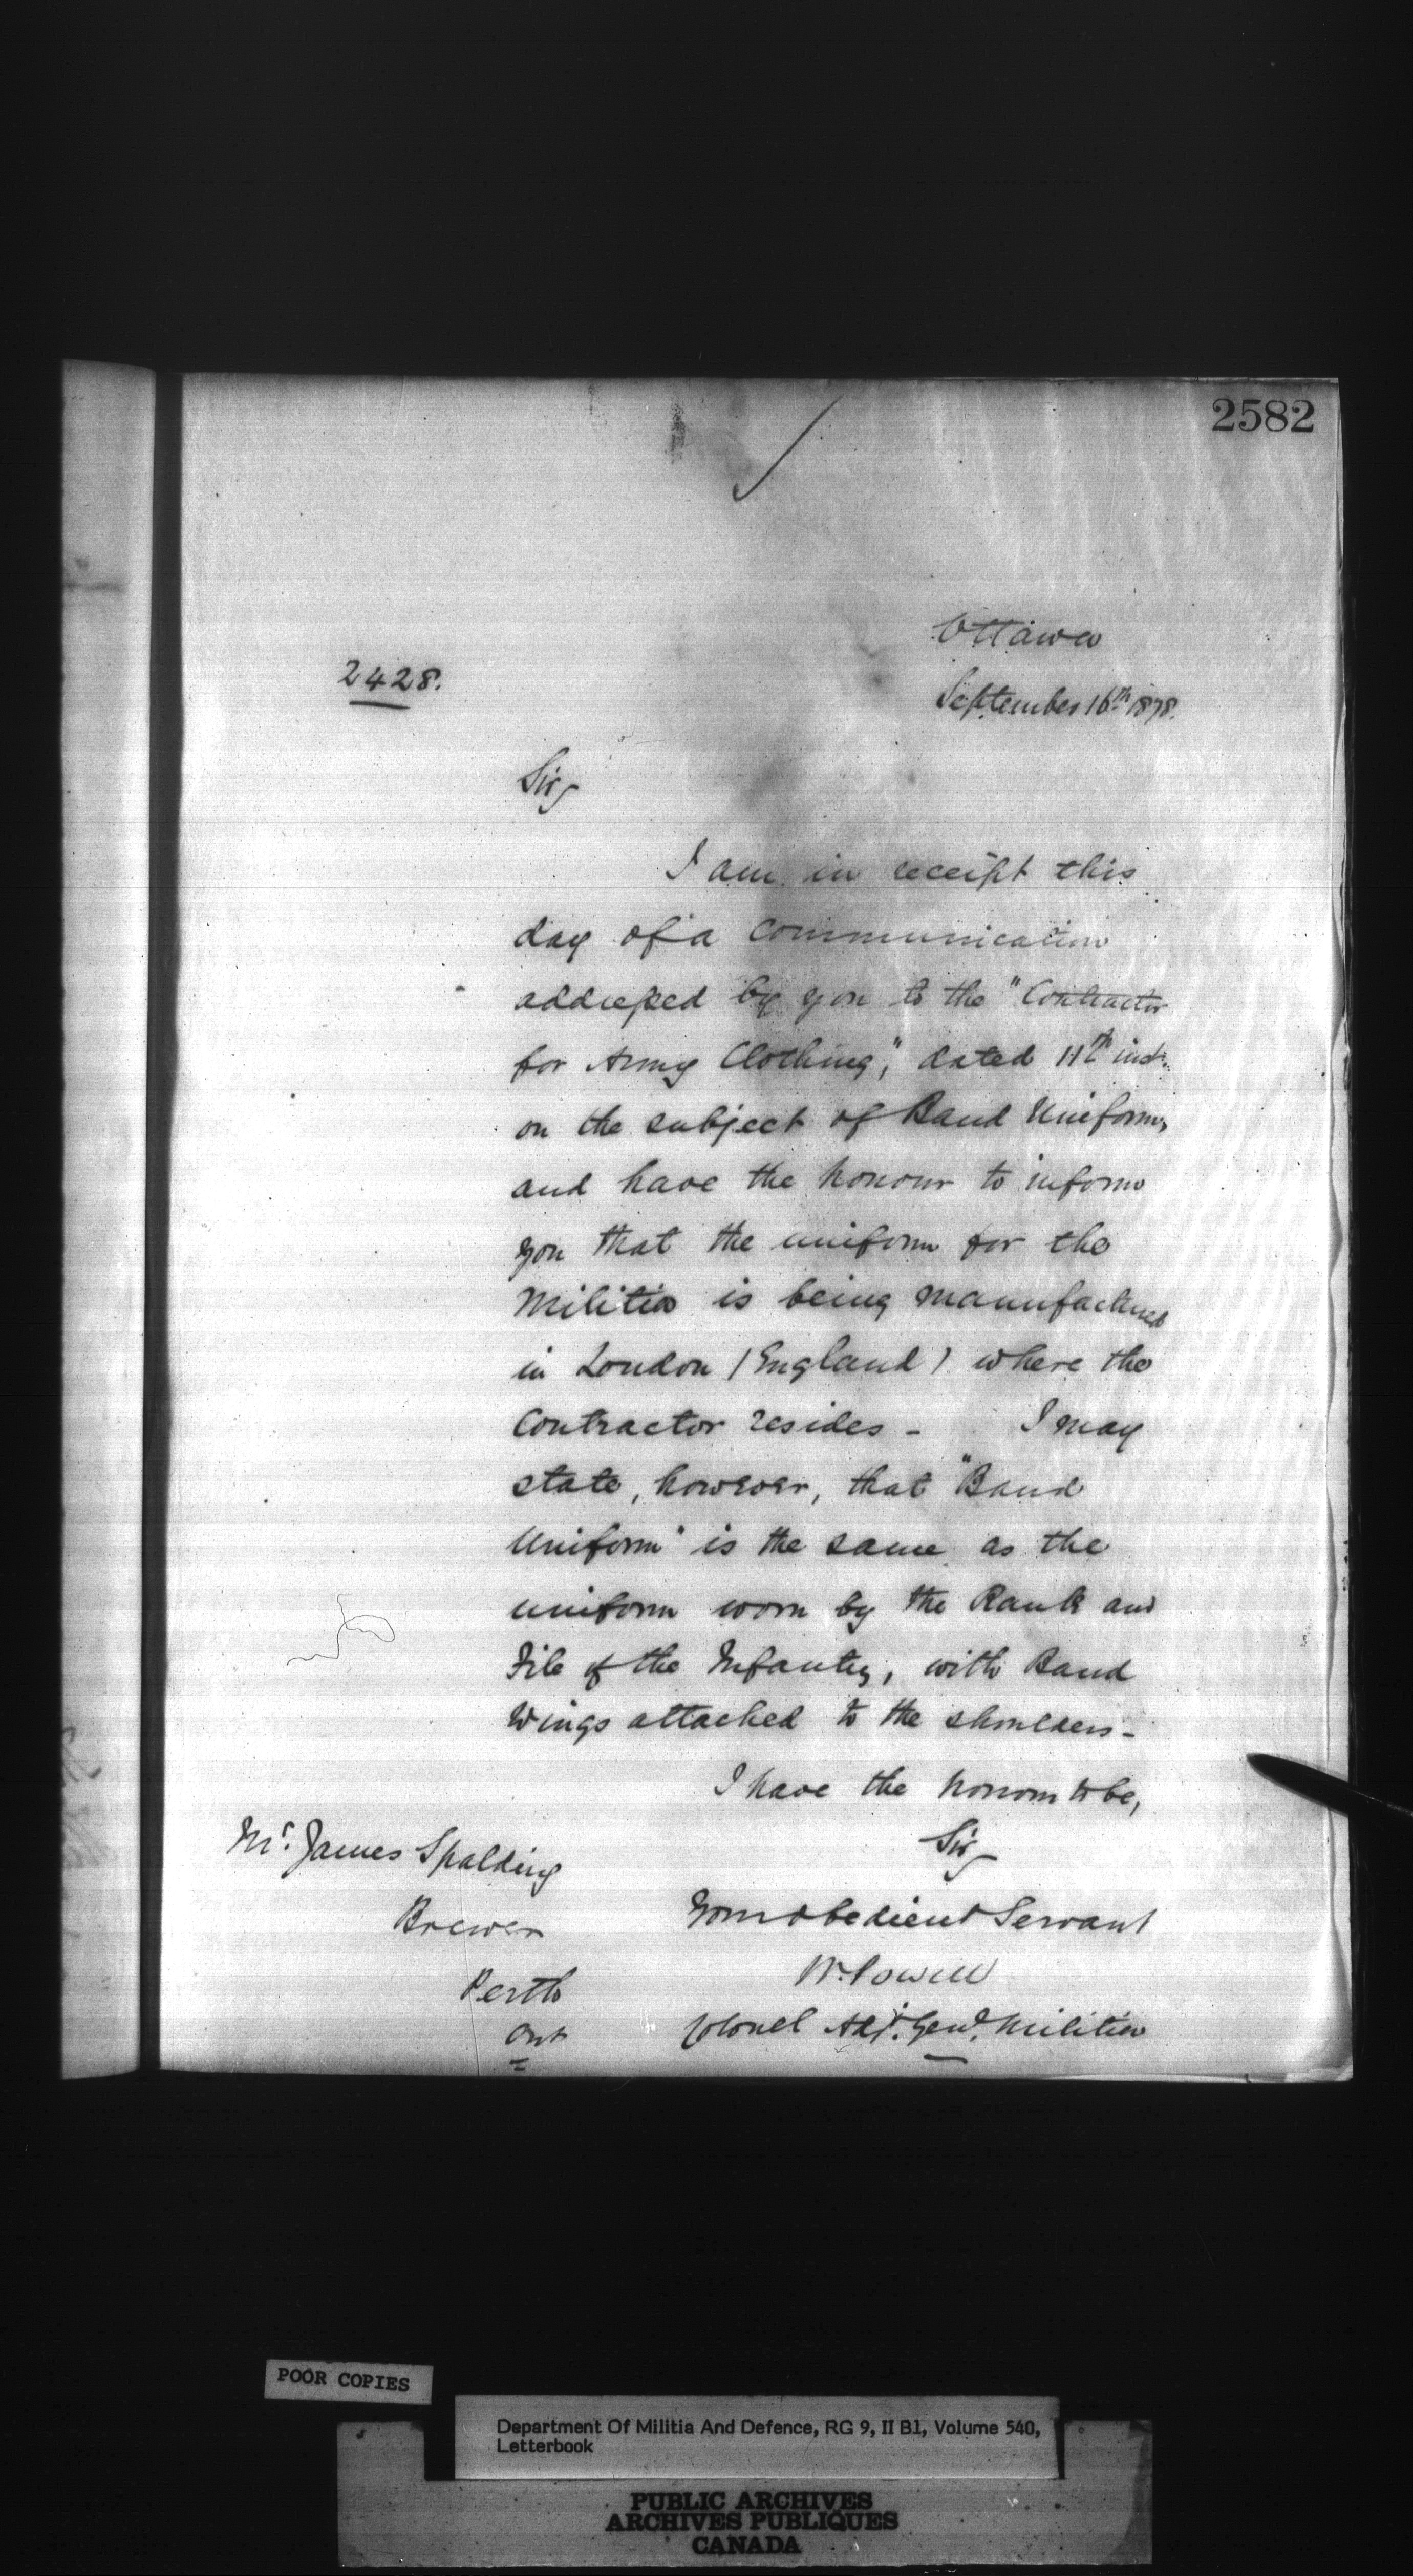 2582
Ottawa
2428.
September 16th 1878.
Sir
I am in receipt this
day of a communication
addressed by you to the "Contractor
for Army Clothing", dated 11th inst.
on the subject of Band Uniform,
and have the honour to inform
you that the uniform for the
Militia is being manufactured
in London (England) where the
Contractor resides - I may
state, however, that "Band
Uniform" is the same as the
uniform worn by the Rank and
File of the Infantry, with Band
Wings attached to the shoulders -
I have the honour to be,
Sir
Your obedient Servant
W. Powell
Colonel Adjt. Genl. Militia
Mr. James Spalding
Brewer
Perth
Ont
POOR COPIES
Department Of Militia And Defence, RG 9, II B1, Volume 540,
Letterbook
PUBLIC ARCHIVES
ARCHIVES PUBLIQUES
CANADA